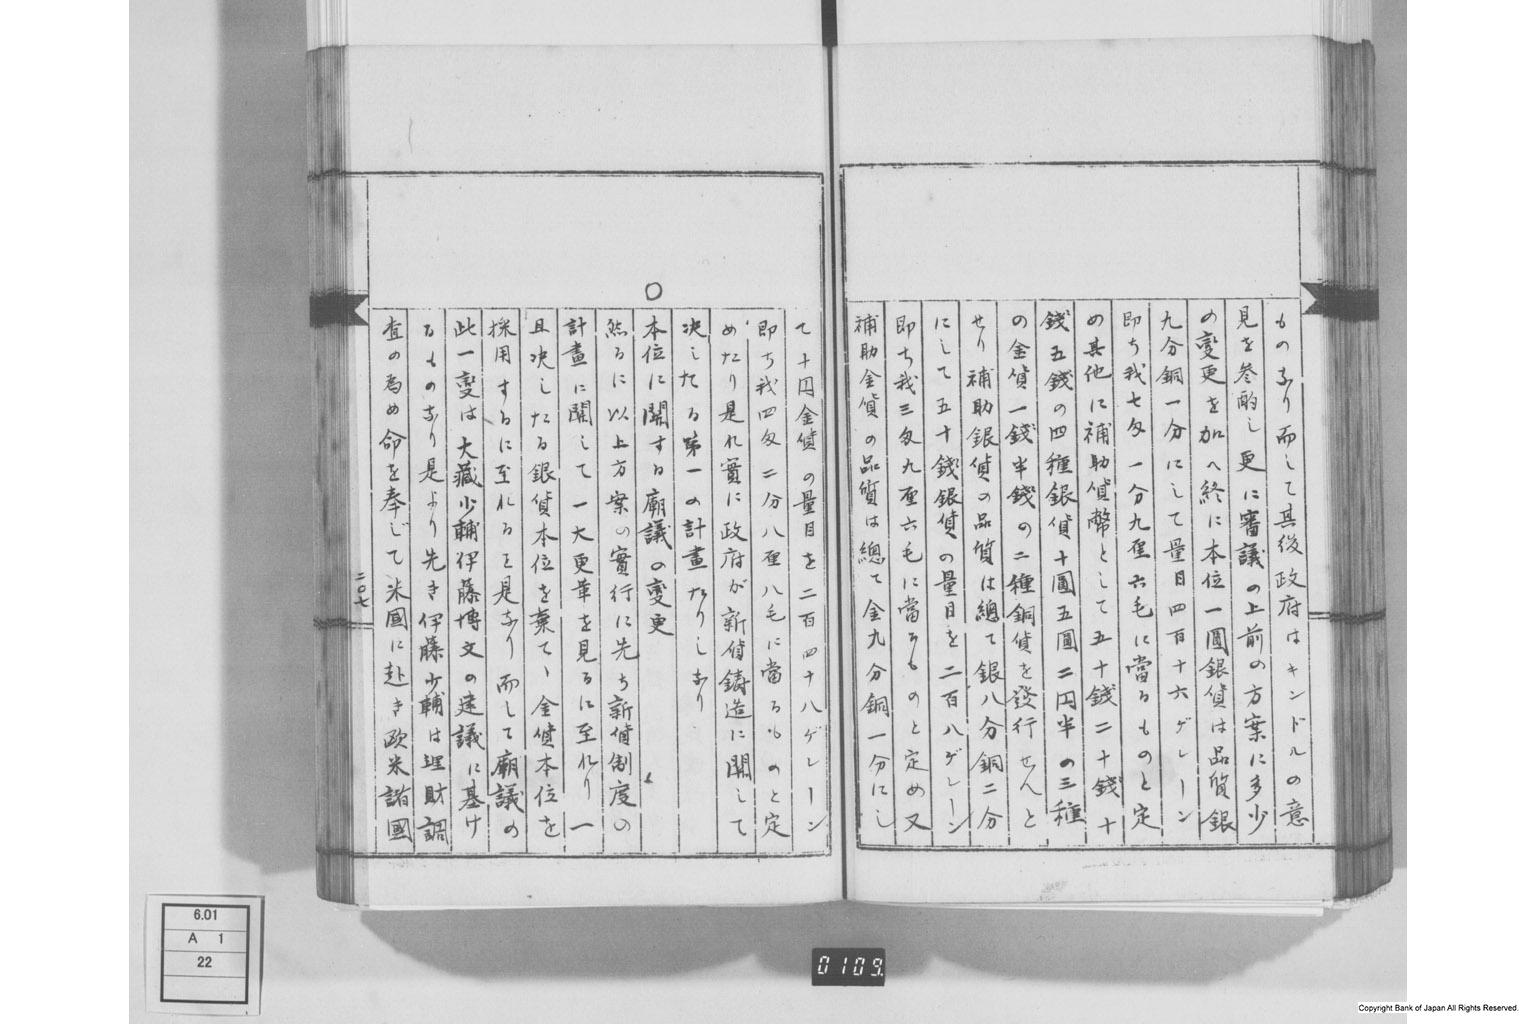 ものなり而して其後政府はキンドルの意
見を参酌し更に審議の上前の方案に多少
の變更を加へ終に本位一圓銀貨は品質銀
九分銅一分にして量目四百十六ゲレーン
即ち我七匁一分九厘六毛に當るものと定
め其他に補助貨幣として五十錢二十錢十
錢五錢の四種銀貨十圓五圓二円半の三種
の金貨一錢半錢の二種銅貨を發行せんと
せり補助銀貨の品質は總て銀八分銅二分
にして五十錢銀貨の量目を二百八ゲレーン
即ち我三匁九厘六毛に當るものと定め又
補助金貨の品質は總て金九分銅一分にし
て十円金貨の量目を二百四十八ゲレーン
即ち我四匁二分八厘八毛に當るものと定
めたり是れ實に政府が新貨鋳造に関して
决したる第一の計畫なりしなり
○本位に関する廟議の變更
然るに以上方案の實行に先ち新貨制度の
計畫に関して一大更革を見るに至れり一
旦决したる銀貨本位を棄て、金貨本位を
採用するに至れること是なり而して廟議の
此一變は大藏少輔伊藤博文の建議に基け
るものなり是より先き伊藤少輔は理財調
査の為め命を奉じて米國に赴き欧米諸國
二〇七
6.01
A 1
22
0109
Copyright Bank of Japan All Rights Reserved.